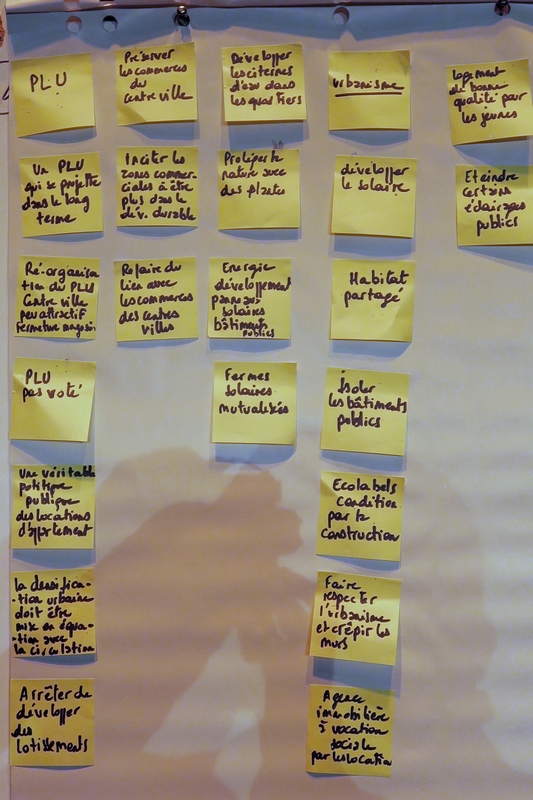 PLU
Un PLU
qui se projette
dans le long
terme
Ré-organisa
tion du PLU
Centre ville
peu attractif
fermeture magasin
PLU
pas voté
Une véritable
politique
publique
des locations
d'appartement
la densifica-
-tion urbaine
doit être
mise en équa-
-tion avec
la circulation
Arrêter de
développer
des
lotissements
Préserver
les commerces
du
centre ville
Inciter les
zones commer-
ciales à être
plus dans le
dév. durable
Refaire du
lien avec
les commerces
des centres
villes
Développer
les citernes
d'eau dans
les quartiers
nature avec
des plantes
Energie
développement
panneaux
solaires
bâtiments
publics
Fermes
solaires
mutualisées
Urbanisme
développer
le solaire
Habitat
partagé
isoler
les bâtiments
publics
Ecolabels
condition
par la
construction
Faire
respecter
l'urbanisme
et crépir les
murs
Agence
immobilière
à vocation
sociale
par les locatio
logement
de bonne
qualité pour
les jeunes
Eteindre
certains
éclairages
publics